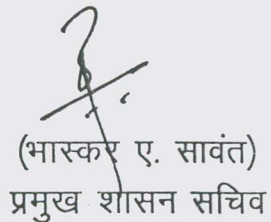 (भास्कर ए. सावंत)
प्रमुख शासन सचिव